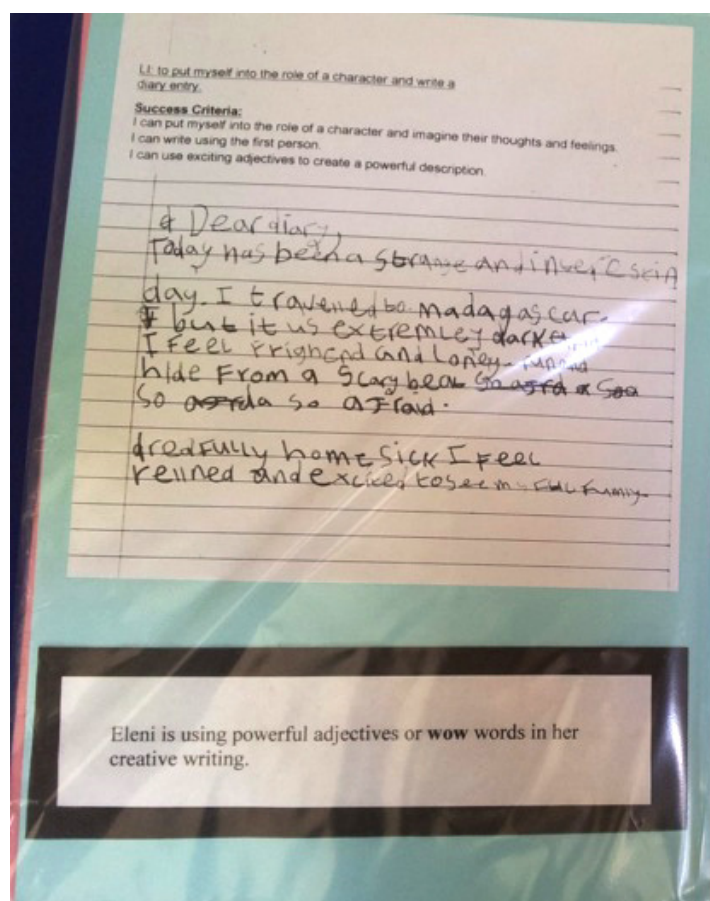 LI: to put myself into the role of a character and write a
diary entry.
Success Criteria:
I can put myself into the role of a character and imagine their thoughts and feelings.
I can write using the first person.
I can use exciting adjectives to create a powerful description.
Dear diary,
Today has been a strange and
day. I travelled to madagascar.
but it us extremley
I feel and Loney.
hide From a Scary bear
so so afraid.
dredfully home sick I Feel
and to see
Eleni is using powerful adjectives or wow words in her
creative writing.